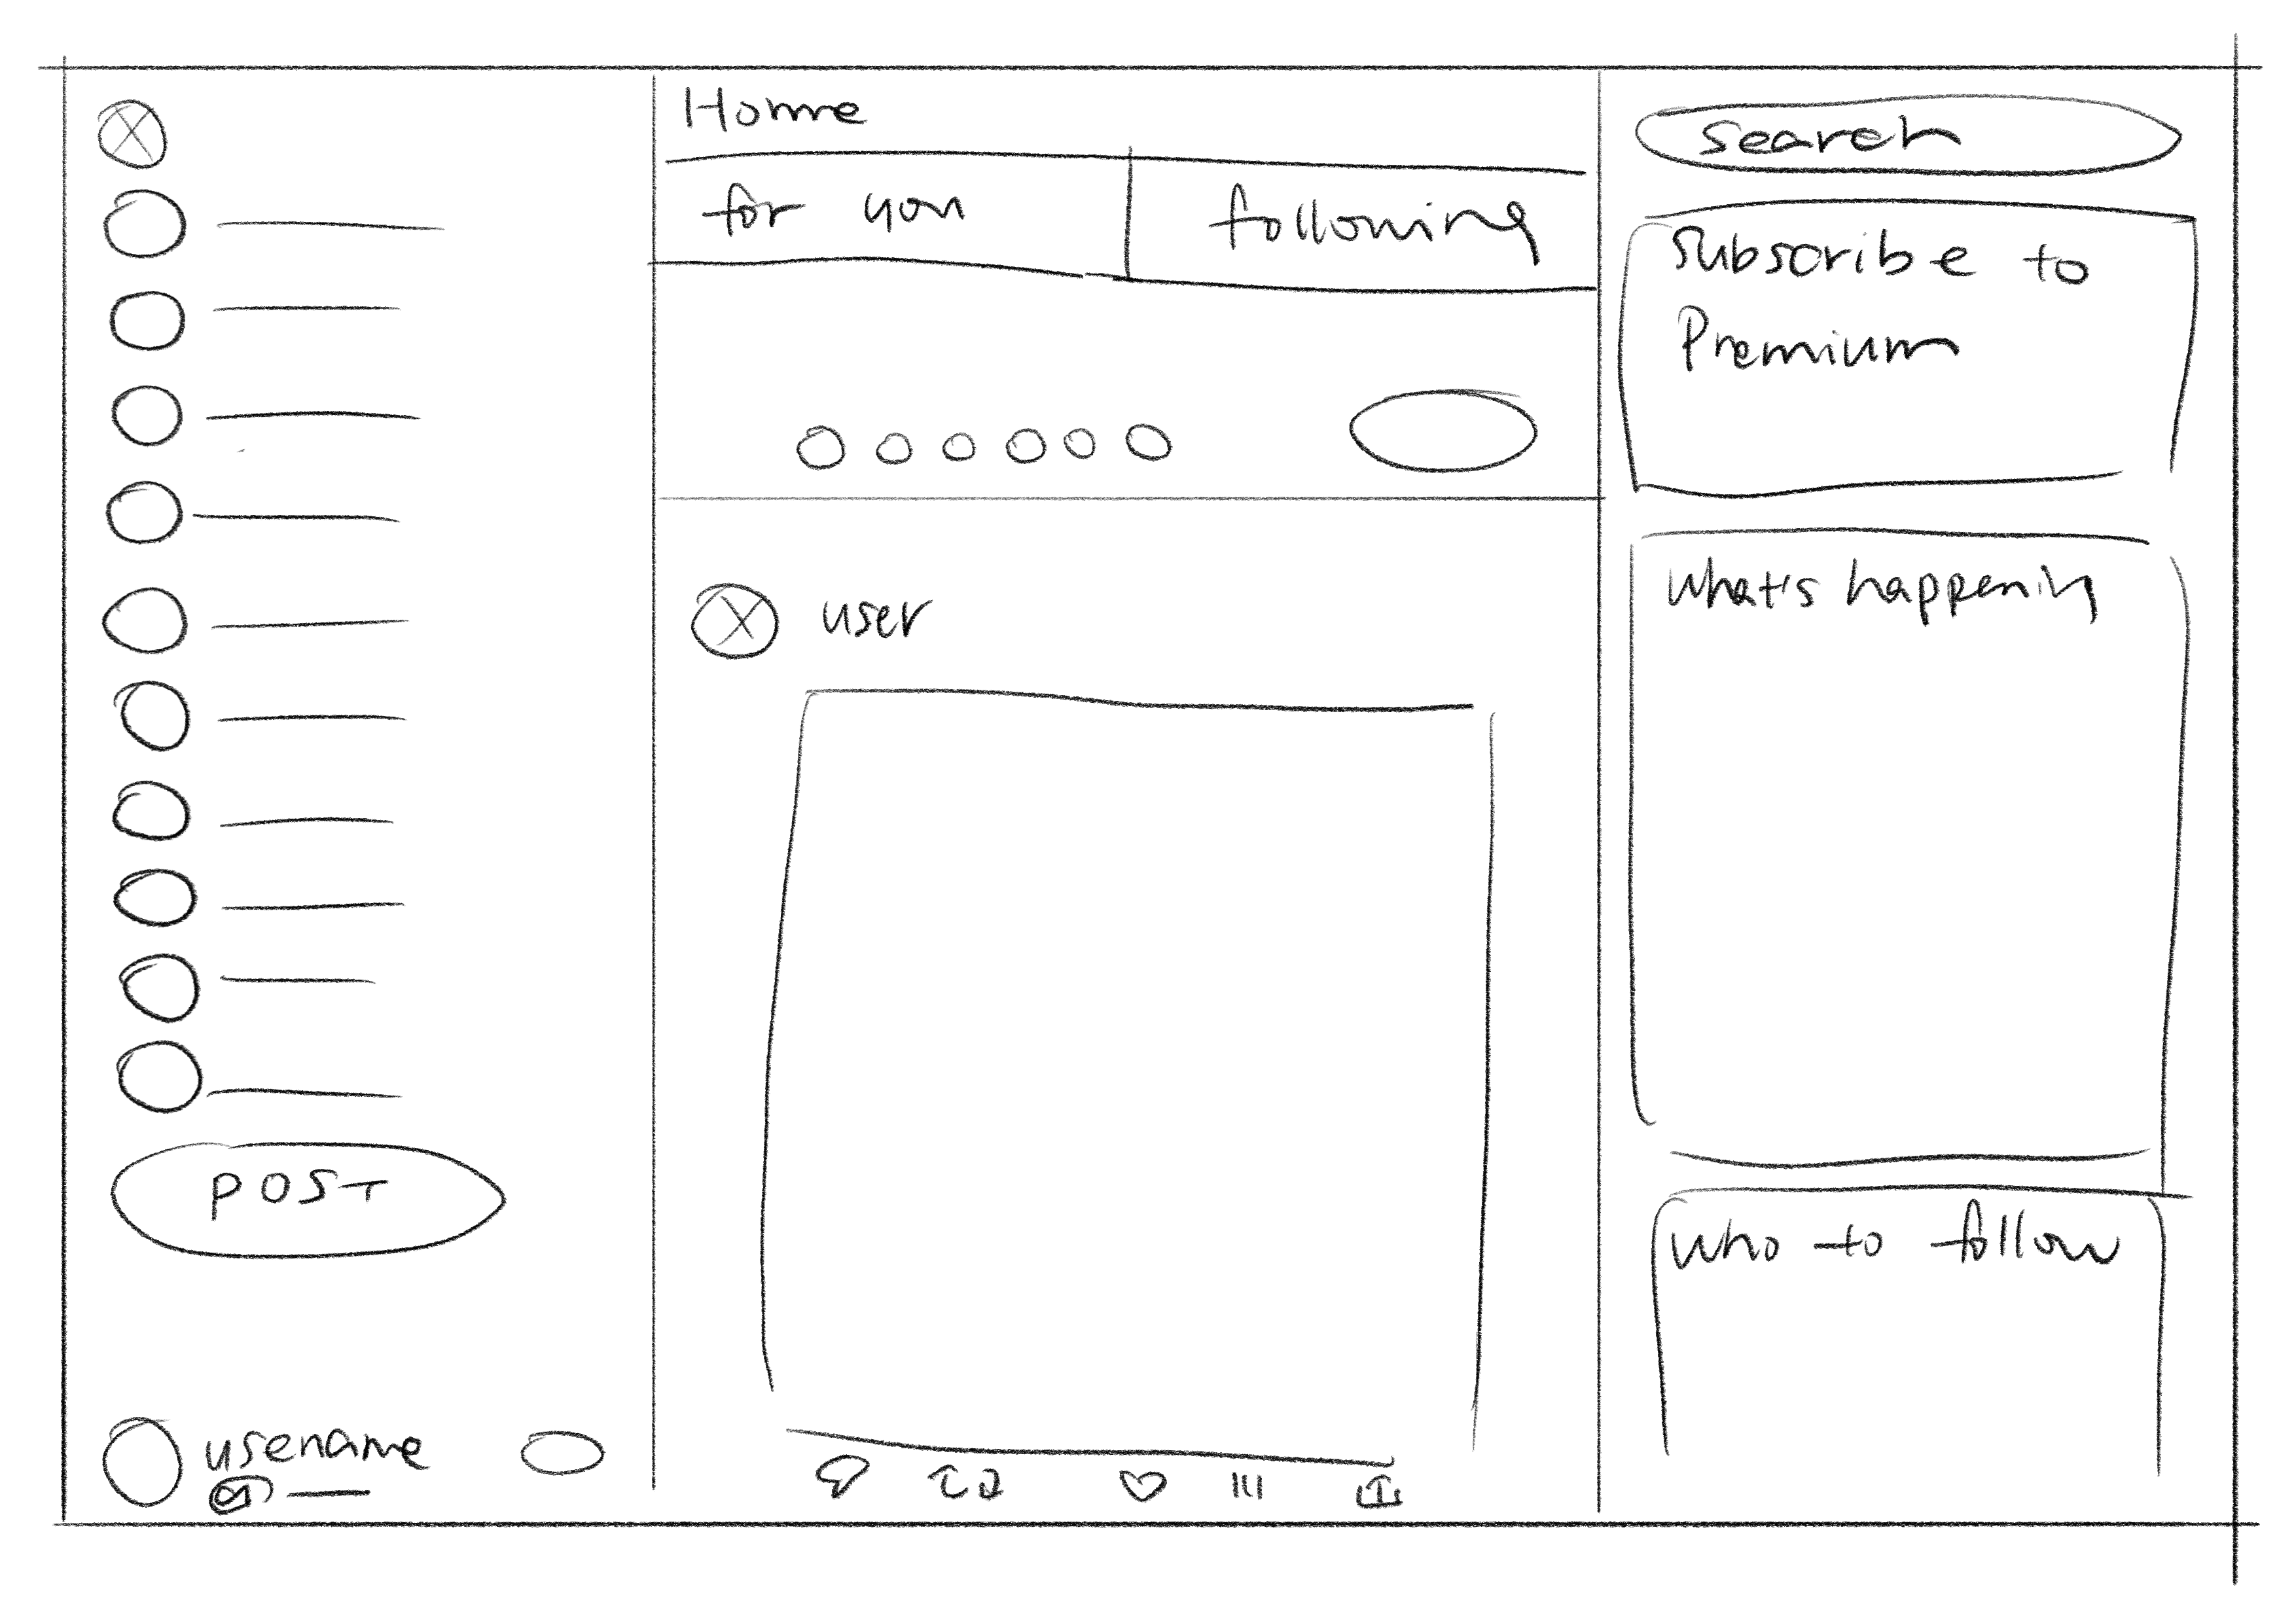 POST
usename
@
Home
for you
following
user
search
Subscribe to
Premium
What's happening
who to follow